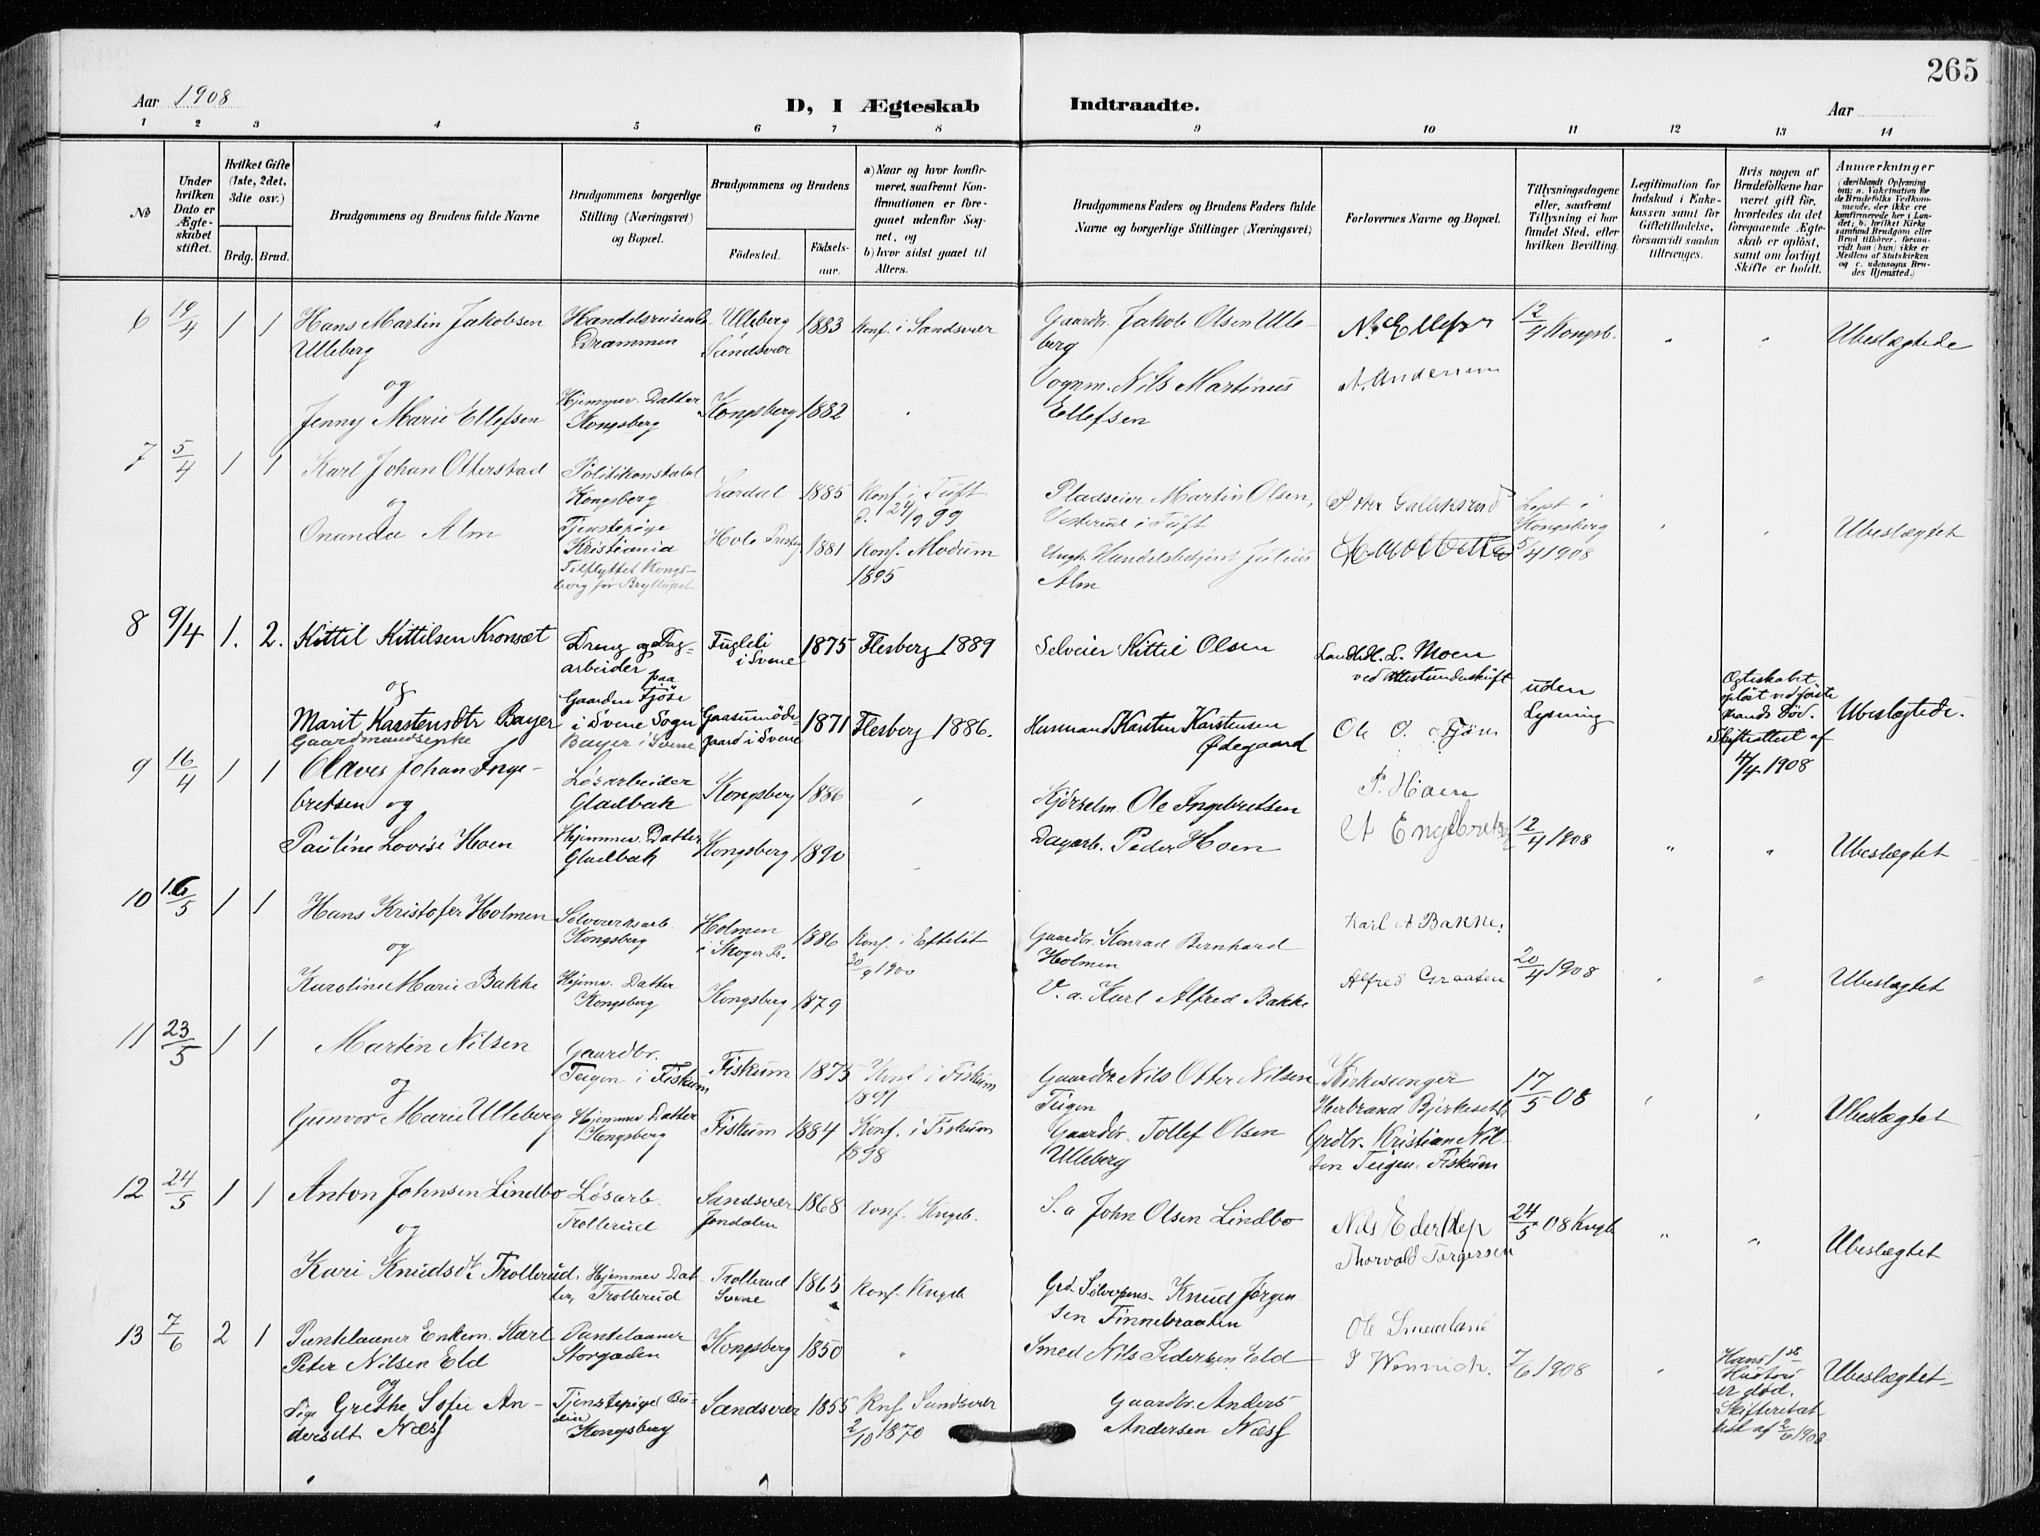 265
Aar 1908
D, I Ægteskab Indtraadte.
Aar
1 2 3 4 5 6 7 8 9 10 11 12 13 14
No
Under hvilken Dato er Ægteskabet stiftet.
Hvilket Gifte (1ste, 2det, 3die osv.)
Brdg. Brud.
Brudgommens og Brudens fulde Navne
Brudgommens borgerlige Stilling (Næringsvei) og Bopæl.
Brudgommens og Brudens
Födested. Födselsaar.
a) Naar og hvor konfirmeret, saafremt Konfirmationen er foregaaet udenfor Sognet, og
b) hvor sidst gaaet til Alters.
Brudgommens Faders og Brudens Faders fulde Navne og borgerlige Stillinger (Næringsvei)
Forlovernes Navne og Bopæl.
Tillysningsdagene eller, saafremt Tillysning ei har fundet Sted, efter hvilken Bevilling.
Legitimation for Indskud i Enkekassen samt for Giftetilladelse, forsaavidt saadan tiltrænges.
Hvis nogen af Brudefolkene har været gift för, hvorledes da det foregaaende Ægteskab er oplöst, samt om lovligt Skifte er holdt.
Anmærkninger
6 19/4 1 1 Hans Martin Jakobsen Ulleberg
Handelsreisende Drammen
Ulleberg Sandsvær 1883 Konf. i Sandsvær
Gaardbr. Jakob Olsen Ulleberg
N. Ellefsen
12/4 Kongsb.
Ubeslægtede
og
Jenny Marie Ellefsen
Hjemmev. Datter Kongsberg
Kongsberg 1882
Vognm. Nils Martinus Ellefsen
A. Andersen
7 5/4 1 1 Karl Johan Otterstad
Politikonstabel Kongsberg
Lærdal 1885 Konf. i Tuft d. 24/9 99
Pladseier Martin Olsen, Vesterud i Tuft
Lyst i Kongsberg 5/4 1908
Ubeslægtet
og
Onanda Alm
Tjenstepige Kristiania
Tilflyttet Kongsberg før Bryllupet
Hole Prestg 1881 Konf. Modum 1895
Ungk. Handelsbetjent Julius Alm
8 9/4 1. 2. Kittil Kittilsen Kronsæt
Dreng og Dagarbeider paa Gaarden Fjøse i Svene Sogn
Fugleli i Svene 1875 Flesberg 1889
Selveier Kittil Olsen
Landhdl. L. Moen ved Attestunderskrift
uden Lysning
Ægteskabet opløst ved første Mands Død. Skifteattest af 4/4 1908
Ubeslægtede.
og
Marit Karstensdtr Bayer
Gaardmandsenke
Bayer i Svene
Gaasumødegaard i Svene 1871 Flesberg 1886.
Husmand Karsten Karstensen Ødegaard
Ole O. Fjøse
9 16/4 1 1 Olaves Johan Ingebretsen og
Løsarbeider Gladbak
Kongsberg 1886
Hjørhelm. Ole Ingebretsen
P. Hoen
Pauline Lovise Hoen
Hjemmev. Datter Gladbak
Kongsberg 1890
Dagarb. Peder Hoen
A Engebretsen
12/4 1908
Ubeslægtet
10 16/5 1 1 Hans Kristofer Holmen
Sølvverksarb. Kongsberg
Holmen i Skoger Pr. 1886 Konf. i Efteløt 30/9 1900
Gaardbr. Konrad Bernhard Holmen
Karl A Bakke.
20/4 1908
Ubeslægtet
og
Karoline Marie Bakke
Hjemv. Datter Kongsberg
Kongsberg 1879
V. a. Karl Alfred Bakke
Alfred Graaten
11 23/5 1 1 Martin Nilsen
Gaardbr. Teigen i Fiskum
Fiskum 1875 Konf. i Fiskum 1891
Gaardbr. Nils Otter Nilsen Teigen
Kirkesanger Herbrand Bjerkeseth
17/5 08
Ubeslægtet
og
Gunvor Marie Ulleberg
Hjemmev. Datter Kongsberg
Fiskum 1884 Konf. i Fiskum 1898
Gaardbr. Tollef Olsen Ulleberg
Grdbr. Kristian Nilsen Teigen, Fiskum
12 24/5 1 1 Anton Johnsen Lindbo
Løsarb. Trollerud
Sandsvær Jondalen 1868 Konf. Kngsb.
S. a John Olsen Lindbo
Nils Ederklep
24/5 08 Kngb
Ubeslægtet
og
Kari Knudsdt. Trollerud,
Hjemmev. Datter, Trollerud
Trollerud Svene 1865 Konf. Kngsb
Knud Jørgensen Finnebraaten
Thorvald Torgersen
13 7/6 2 1 Pantelaaner Enkem. Karl Peter Nilsen Eld
Pantelaaner Storgaden
Kongsberg 1850
Smed Nils Pedersen Eld
Ole Smedland
7/6 1908
Hans 1ste Hustru er død. Skifteretattest af 2/6 1908
Ubeslægtet
og
Pige Grethe Sofie Andersdt Næss
Tjenstepige Kongsberg
Sandsvær 1855 Knf. Sandsvær 2/10 1870
Gaardbr. Anders Andersen Næss
P Wennich.